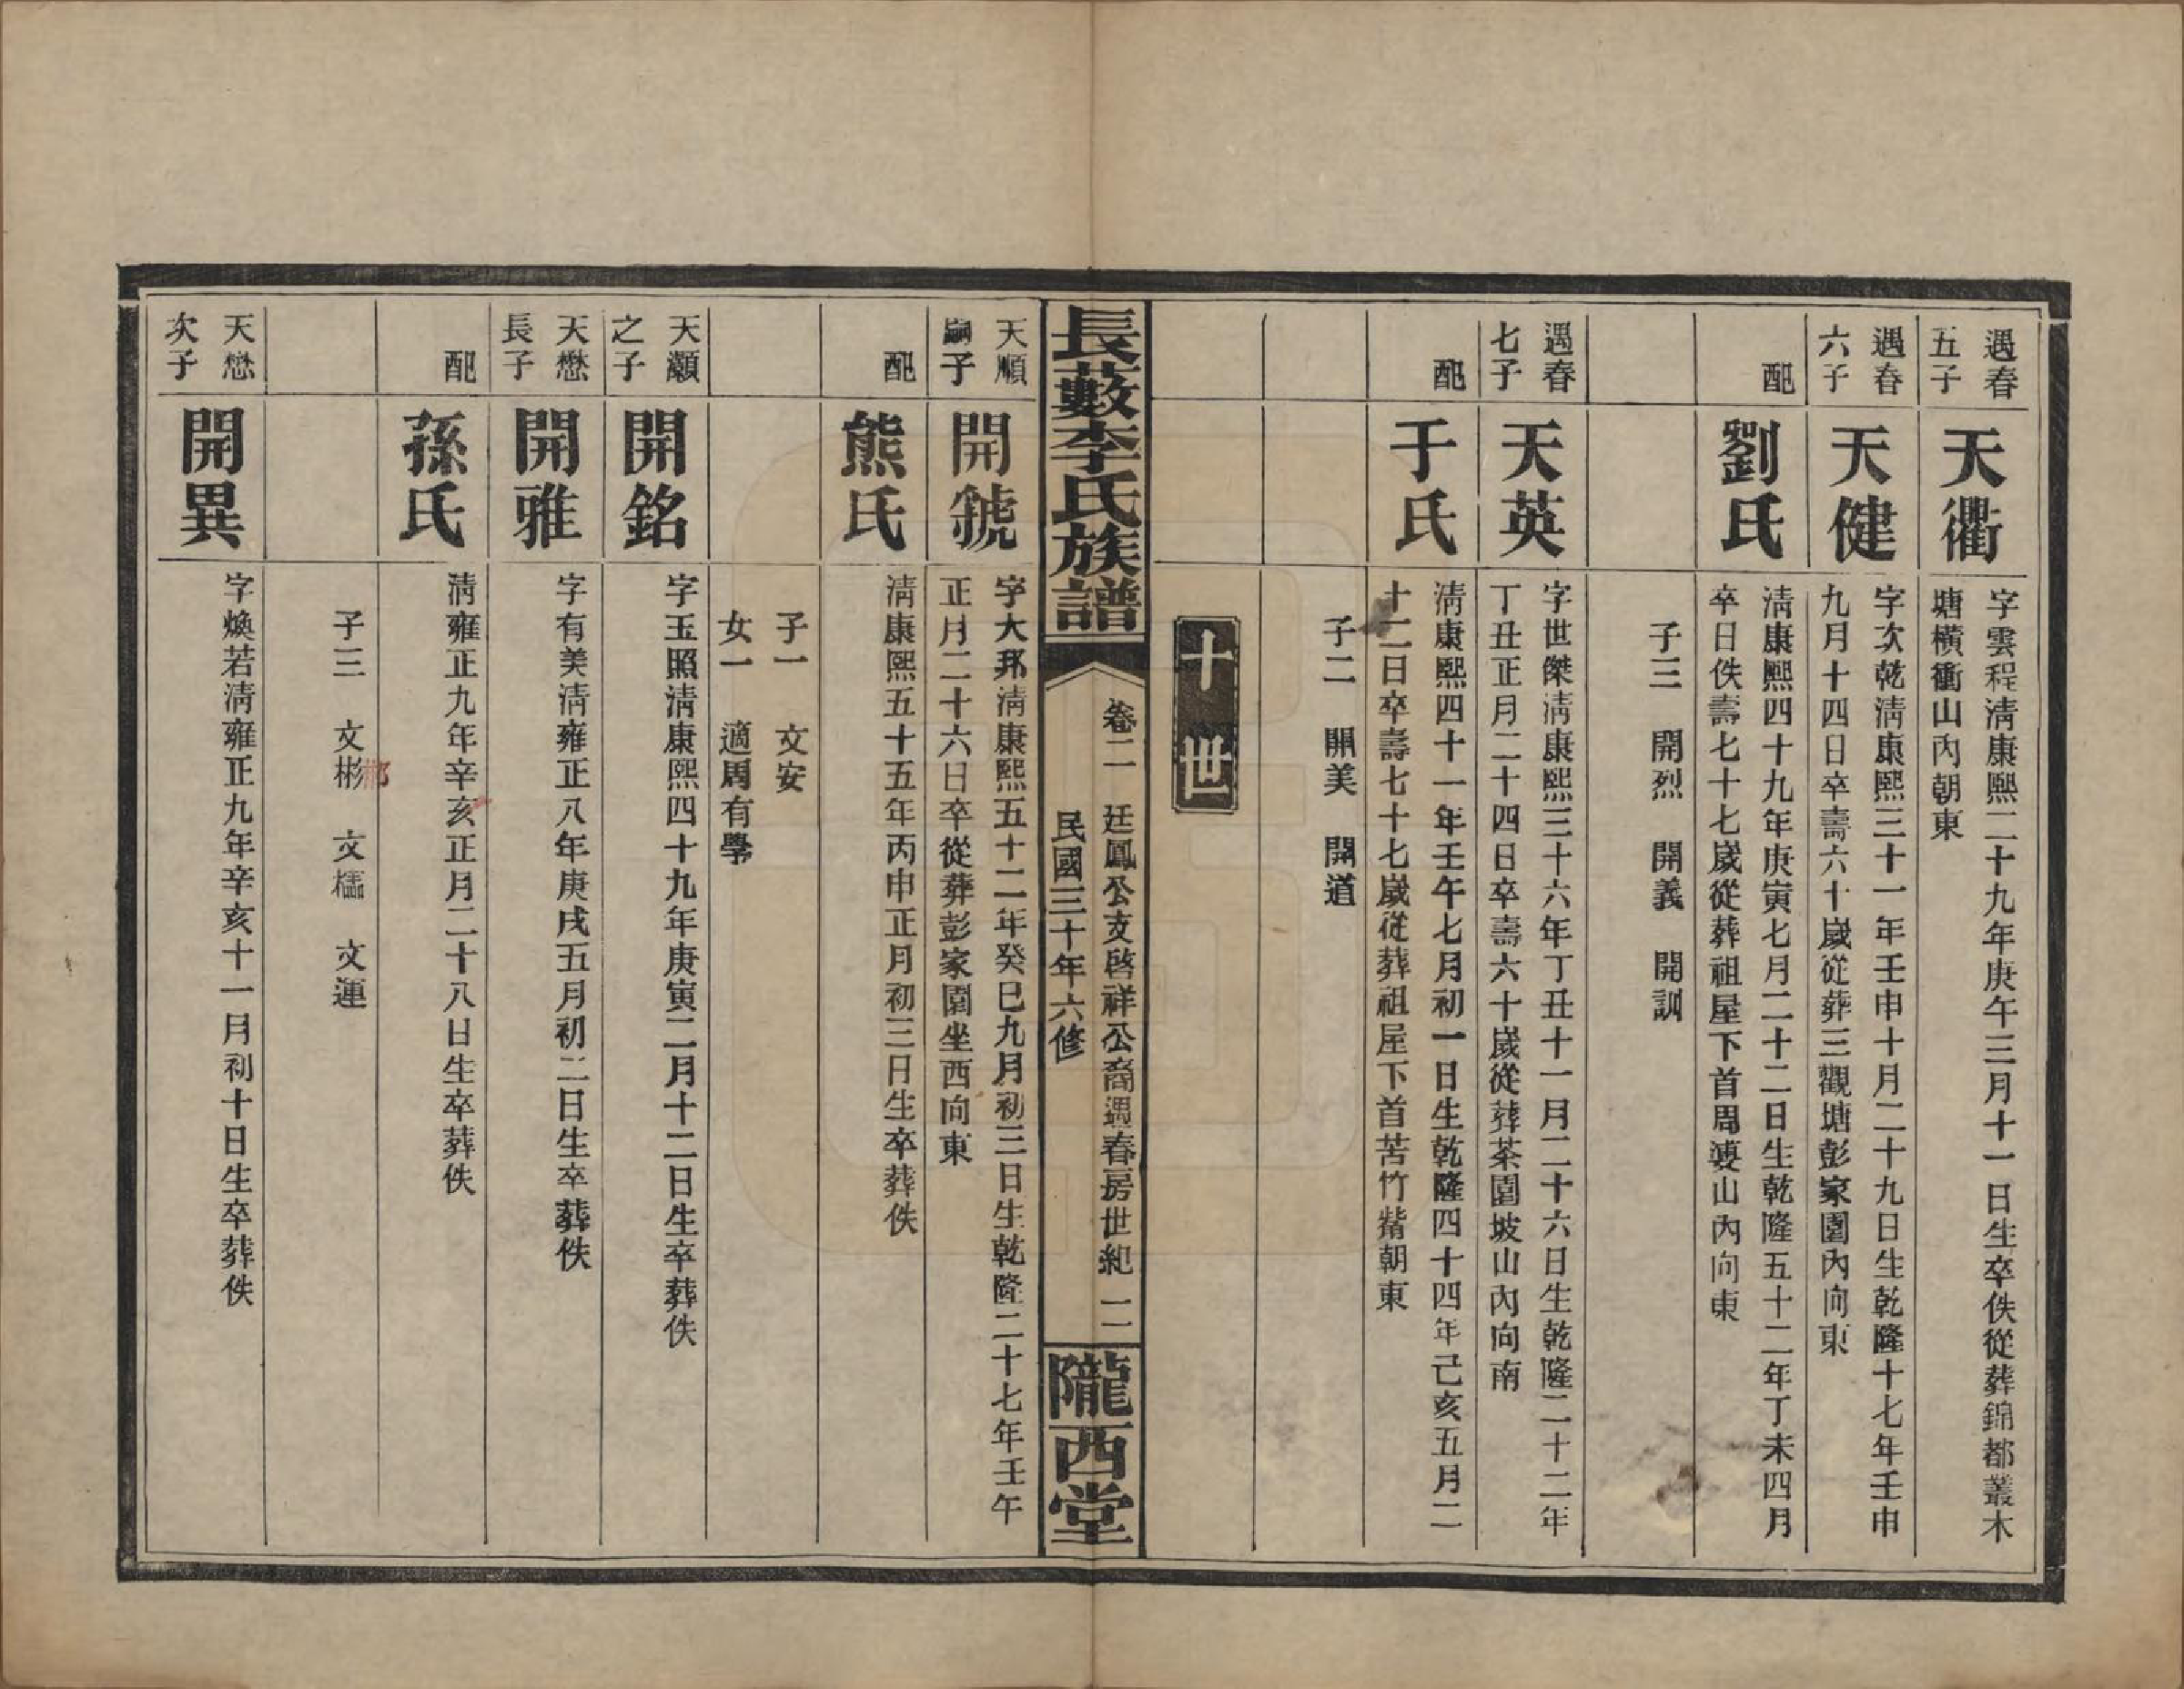 遇春
五子
天衢
字雲程淸康熙二十九年庚午三月十一日生卒佚從葬錦都叢木
塘橫衝山內朝東
遇春
六子
天健
字次乾淸康熙三十一年壬申十月二十九日生乾隆十七年壬申
九月十四日卒壽六十歲從葬三觀塘彭家園內向東
配
劉氏
淸康熙四十九年庚寅七月二十二日生乾隆五十二年丁未四月
卒日佚壽七十七歲從葬祖屋下首周婆山內向東
子三　開烈　開義　開訓
遇春
七子
天英
字世傑淸康熙三十六年丁丑十一月二十六日生乾隆二十二年
丁丑正月二十四日卒壽六十歲從葬茶園坡山內向南
配
于氏
淸康熙四十一年壬午七月初一日生乾隆四十四年己亥五月二
十二日卒壽七十七歲從葬祖屋下首苦竹嘴朝東
子二　開美　開道
十世
長藪李氏族譜
卷二　廷鳳公支啓祥公裔遇春房世紀　二
民國三十年六修
隴西堂
天順
嗣子
開號
字大邦淸康熙五十二年癸巳九月初三日生乾隆二十七年壬午
正月二十六日卒從葬彭家園坐西向東
配
熊氏
淸康熙五十五年丙申正月初三日生卒葬佚
子一　文安
女一　適周有學
天灝
之子
開銘
字玉照淸康熙四十九年庚寅二月十二日生卒葬佚
天懋
長子
開雅
字有美淸雍正八年庚戌五月初二日生卒葬佚
配
孫氏
淸雍正九年辛亥正月二十八日生卒葬佚
子三　文彬　文檽　文運
郴
天懋
次子
開異
字煥若淸雍正九年辛亥十一月初十日生卒葬佚